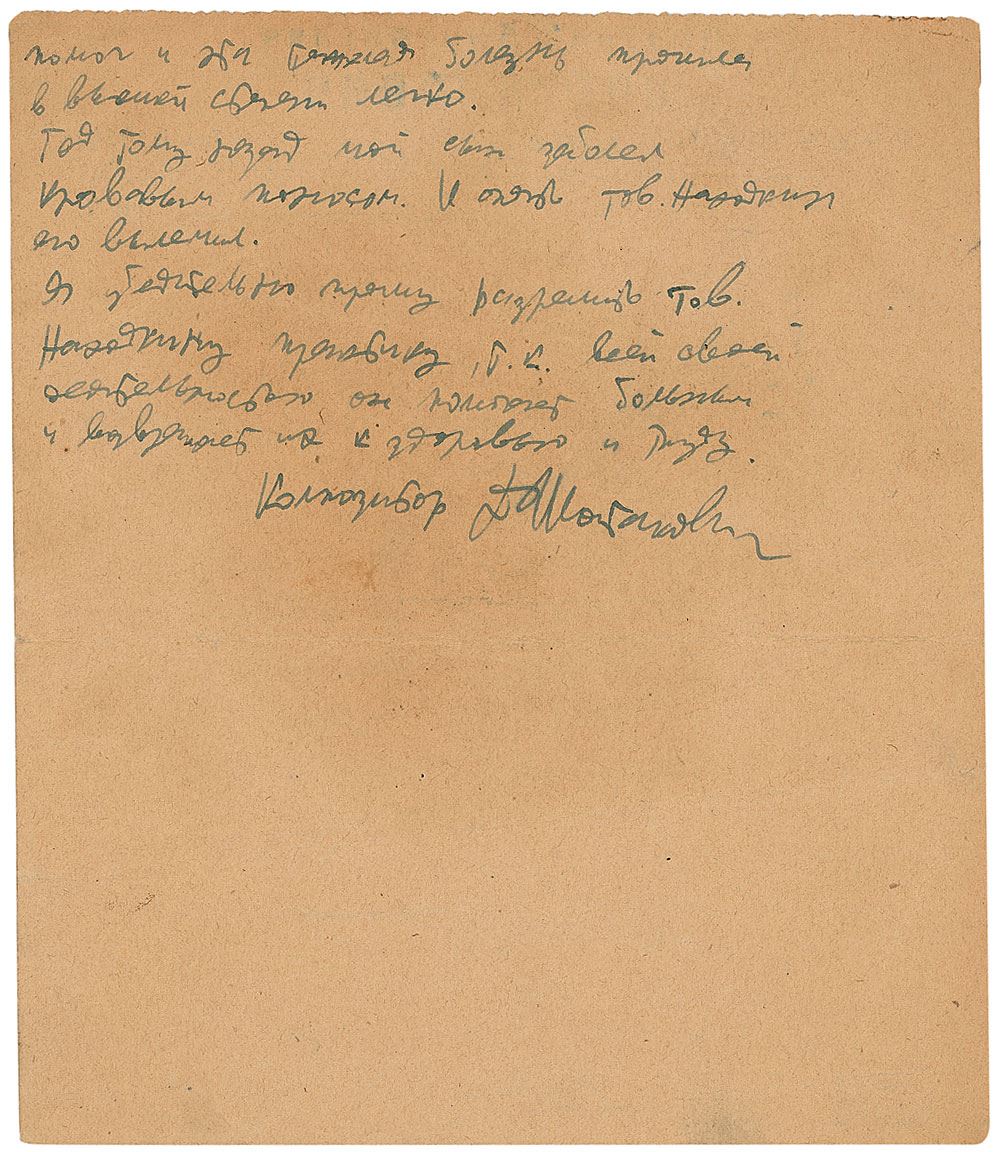 помог и эта тяжелая болезнь прошла
в высшей степени легко.
Год тому назад мой сын заболел
кровавым поносом. И опять тов. Находкин
его вылечил.
Я убедительно прошу разрешить тов.
Находкину практику, т.к. всей своей
деятельностью он помогает больным
и возвращает их к здоровью и труду.
Композитор ДШостакович